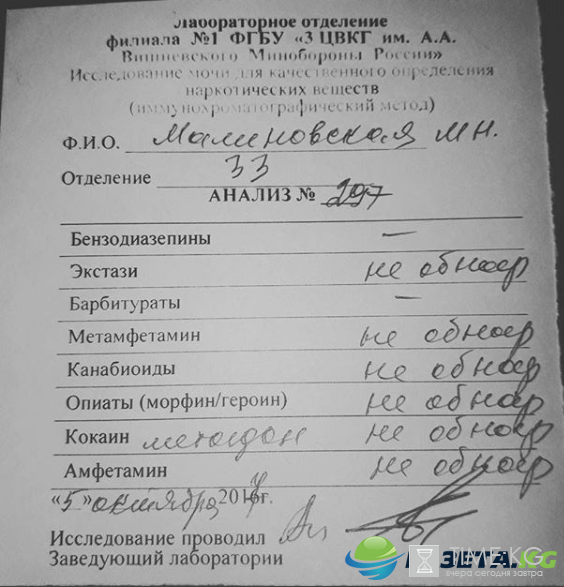 Лабораторное отделение
филиала №1 ФГБУ «3 ЦВКГ им. А.А.
Вишневского Минобороны России»
Исследование мочи для качественного определения
наркотических веществ
(иммунохроматографический метод)
Ф.И.О. Малиновская М Н.
Отделение 33
АНАЛИЗ № 297
Бензодиазепины —
Экстази не обнар
Барбитураты —
Метамфетамин не обнар
Канабиоиды не обнар
Опиаты (морфин/героин) не обнар
Кокаин метадон не обнар
Амфетамин не обнар
«5» октября 2017г.
Исследование проводил
Заведующий лаборатории
ГАЗЕТА.KG
TIME.KG
вчера сегодня завтра